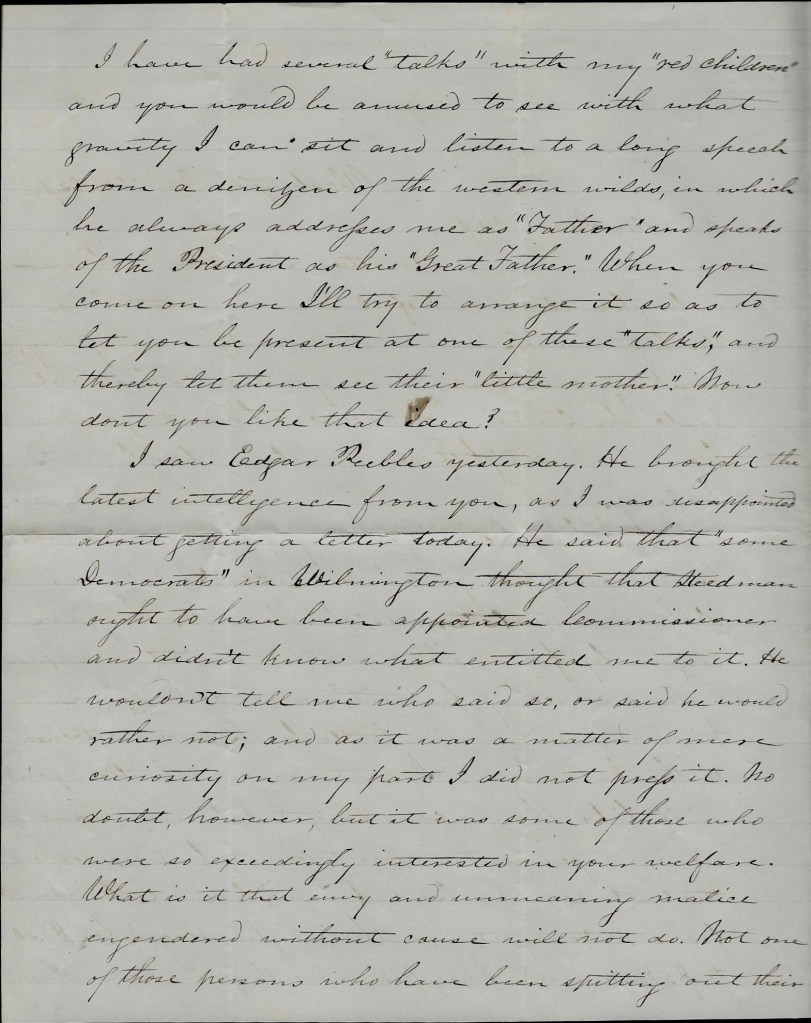 I have had several "talks" with my "red children"
and you would be amused to see with what
gravity I can sit and listen to a long speech
from a denizen of the western wilds, in which
he always addresses me as "Father" and speaks
of the President as his "Great Father." When you
come on here I'll try to arrange it so as to
let you be present at one of these "talks", and
thereby let them see their "little mother". Now
dont you like that idea?
I saw Edgar Peebles yesterday. He brought the
latest intelligence from you, as I was disappointed
about getting a letter today. He said that "some
Democrats" in Wilmington thought that Steedman
ought to have been appointed Commissioner
and didn't know what entitled me to it. He
wouldn't tell me who said so, or said he would
rather not; and as it was a matter of mere
curiosity on my part I did not press it. No
doubt, however, but it was some of those who
were so exceedingly interested in your welfare.
What is it that envy and unmeaning malice
engendered without cause will not do. Not one
of those persons who have been spitting out their